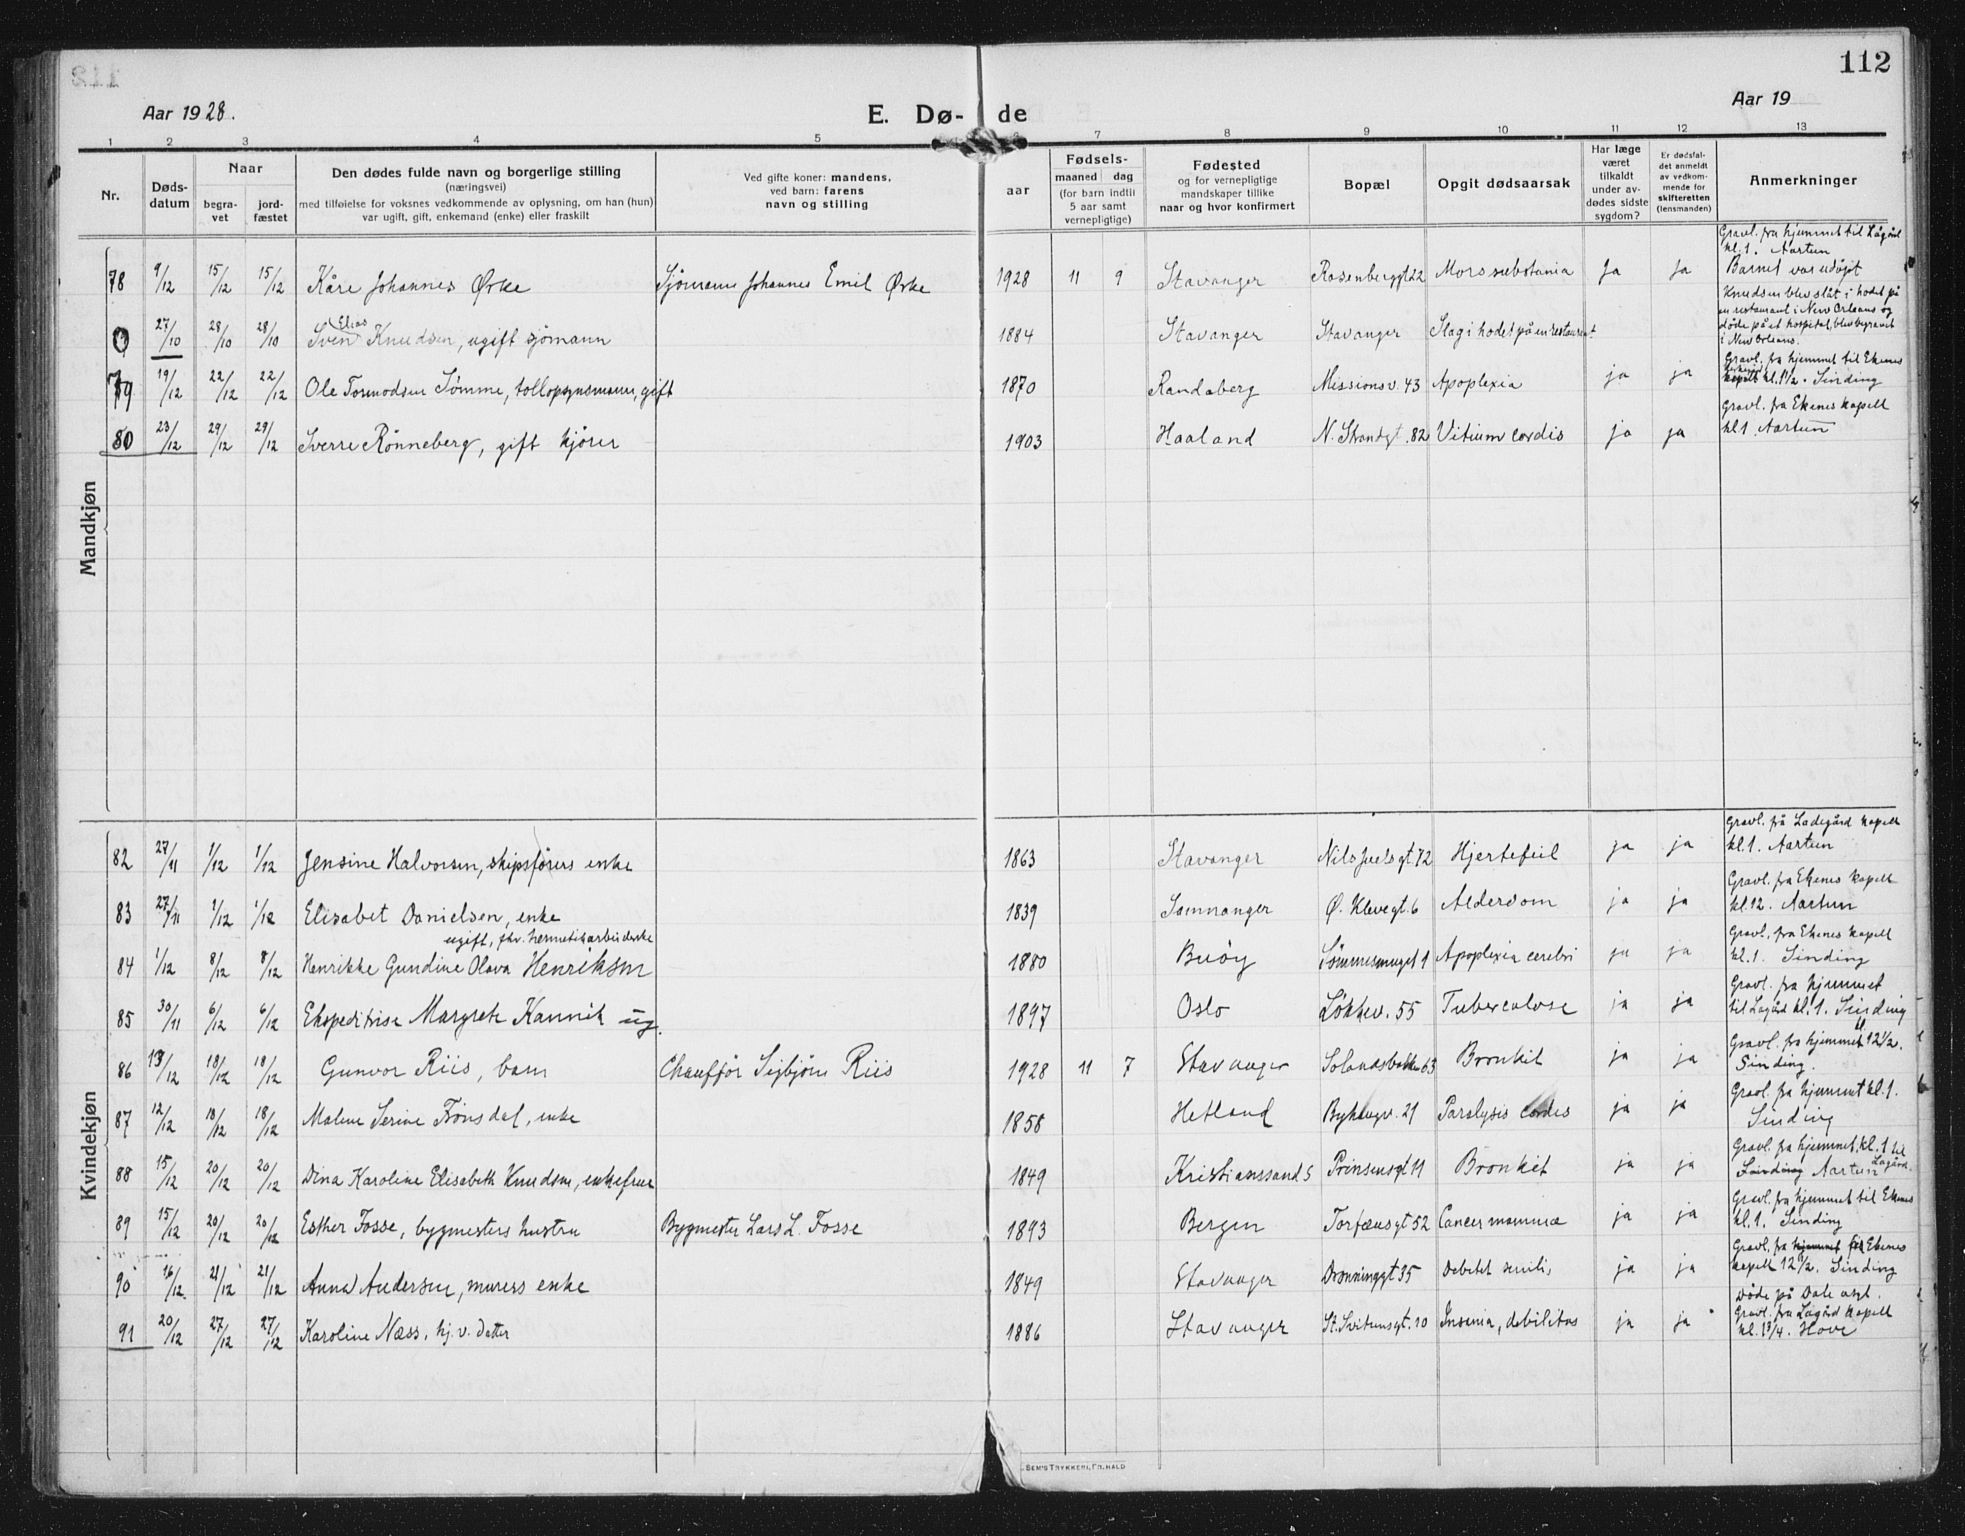 112
Aar 1928.
E. Dø- de
Aar 19
1 2 3 4 5 6 7 8 9 10 11 12 13
Nr.
Døds-
datum
Naar
begra-
vet
jord-
fæstet
Den dødes fulde navn og borgerlige stilling
(næringsvei)
med tilføielse for voksnes vedkommende av oplysning, om han (hun)
var ugift, gift, enkemand (enke) eller fraskilt
Ved gifte koner: mandens,
ved barn: farens
navn og stilling
aar
Fødsels-
maaned dag
(for barn indtil
5 aar samt
vernepligtige)
Fødested
og for vernepligtige
mandskaper tillike
naar og hvor konfirmert
Bopæl
Opgit dødsaarsak
Har læge
været
tilkaldt
under av-
dødes sidste
sygdom?
Er dødsfal-
det anmeldt
av vedkom-
mende for
skifteretten
(lensmanden)
Anmerkninger
Mandkjøn
78 9/12 15/12 15/12 Kåre Johannes Ørke Sjømann Johannes Emil Ørke 1928 11 9 Stavanger Rosenberggt 22 Mors substania ja ja Gravl. fra hjemmet til Lågård
kl. 1. Aartun
Barnet var udøpt
0 27/10 28/10 28/10 Sven Elias Knudsen, ugift sjømann 1884 Stavanger Stavanger Slag i hodet på en restaurant. Knudsen blev slåt i hodet på
en restaurant i New Orleans og
døde på et hospital, blev begravet
i New Orleans.
79 19/12 22/12 22/12 Ole Tormodsen Sømme, tollopsynsmann, gift 1870 Randaberg Missionsv. 43 Apoplexia ja ja Gravl. fra hjemmet til Ekenes
kl. 1 1/2. Sinding
80 23/12 29/12 29/12 Sverre Rønneberg, gift kjører 1903 Haaland N. Strandgt. 82 Vitium cordis ja ja Gravl. fra Ekenes kapell
kl 1. Aartun
Kvindekjøn
82 27/11 1/12 1/12 Jensine Halvorsen, skipsførers enke 1863 Stavanger Nils Juelsgt 72 Hjertefeil ja ja Gravl. frå Ladegård kapell
kl. 1. Aartun
83 27/11 1/12 1/12 Elisabet Danielsen, enke 1839 Samnanger Ø. Klevegt 6 Alderdom ja ja Gravl. fra Ekenes kapell
kl. 12. Aartun
ugift, fhv. hermetikarbeiderske
84 1/12 8/12 8/12 Henrikke Gundine Olava Henriksen 1880 Buøy Sømmesmuget 1 Apoplexia cerebri ja ja Gravl. fra Ekenes kapell
kl. 1. Sinding
85 30/11 6/12 6/12 Ekspeditrise Margrete Kannik ug. 1897 Oslo Løkkev. 55 Tuberculose ja ja Gravl. fra hjemmet
til Lagård kl. 1. Sinding
86 13/12 18/12 18/12 Gunvor Riis, barn Chauffør Sigbjørn Riis 1928 11 7 Stavanger Solandsbakken 63 Bronkit ja ja Gravl. fra hjemmet kl 12 1/2.
Sinding.
87 12/12 18/12 18/12 Malene Serine Trønsdal, enke 1858 Hetland Byhaugv. 21 Paralysis cordis ja ja Gravl. fra hjemmet kl. 1.
Sinding
88 15/12 20/12 20/12 Dina Karoline Elisabeth Knudsen, enkefrue 1849 Kristianssand S Prinsensgt 11 Bronkit ja ja Gravl. fra hjemmet kl. 1 til
Lagård. Sinding Aartun
89 15/12 20/12 20/12 Esther Fosse, bygmesters hustru Bygmester Lars L. Fosse 1893 Bergen Torfæusgt 52 Cancer mammæ ja ja Gravl. fra hjemmet til Ekenes
kl. 1. Sinding
90 16/12 21/12 21/12 Anna Andersen, murers enke 1849 Stavanger Dronninggt 35 Debilit senilis ja ja Gravl. fra hjemmet til Ekenes
kapell 12 1/2. Sinding
91 20/12 27/12 27/12 Karoline Næss, hj. v. datter 1886 Stavanger St. Svitunsgt. 10 Insania, debilitas ja ja Døde på Dale asyl.
Gravl. fra Lagård kapell
kl. 1 3/4. Hove
SEM'S TRYKKERI, FR. HALD